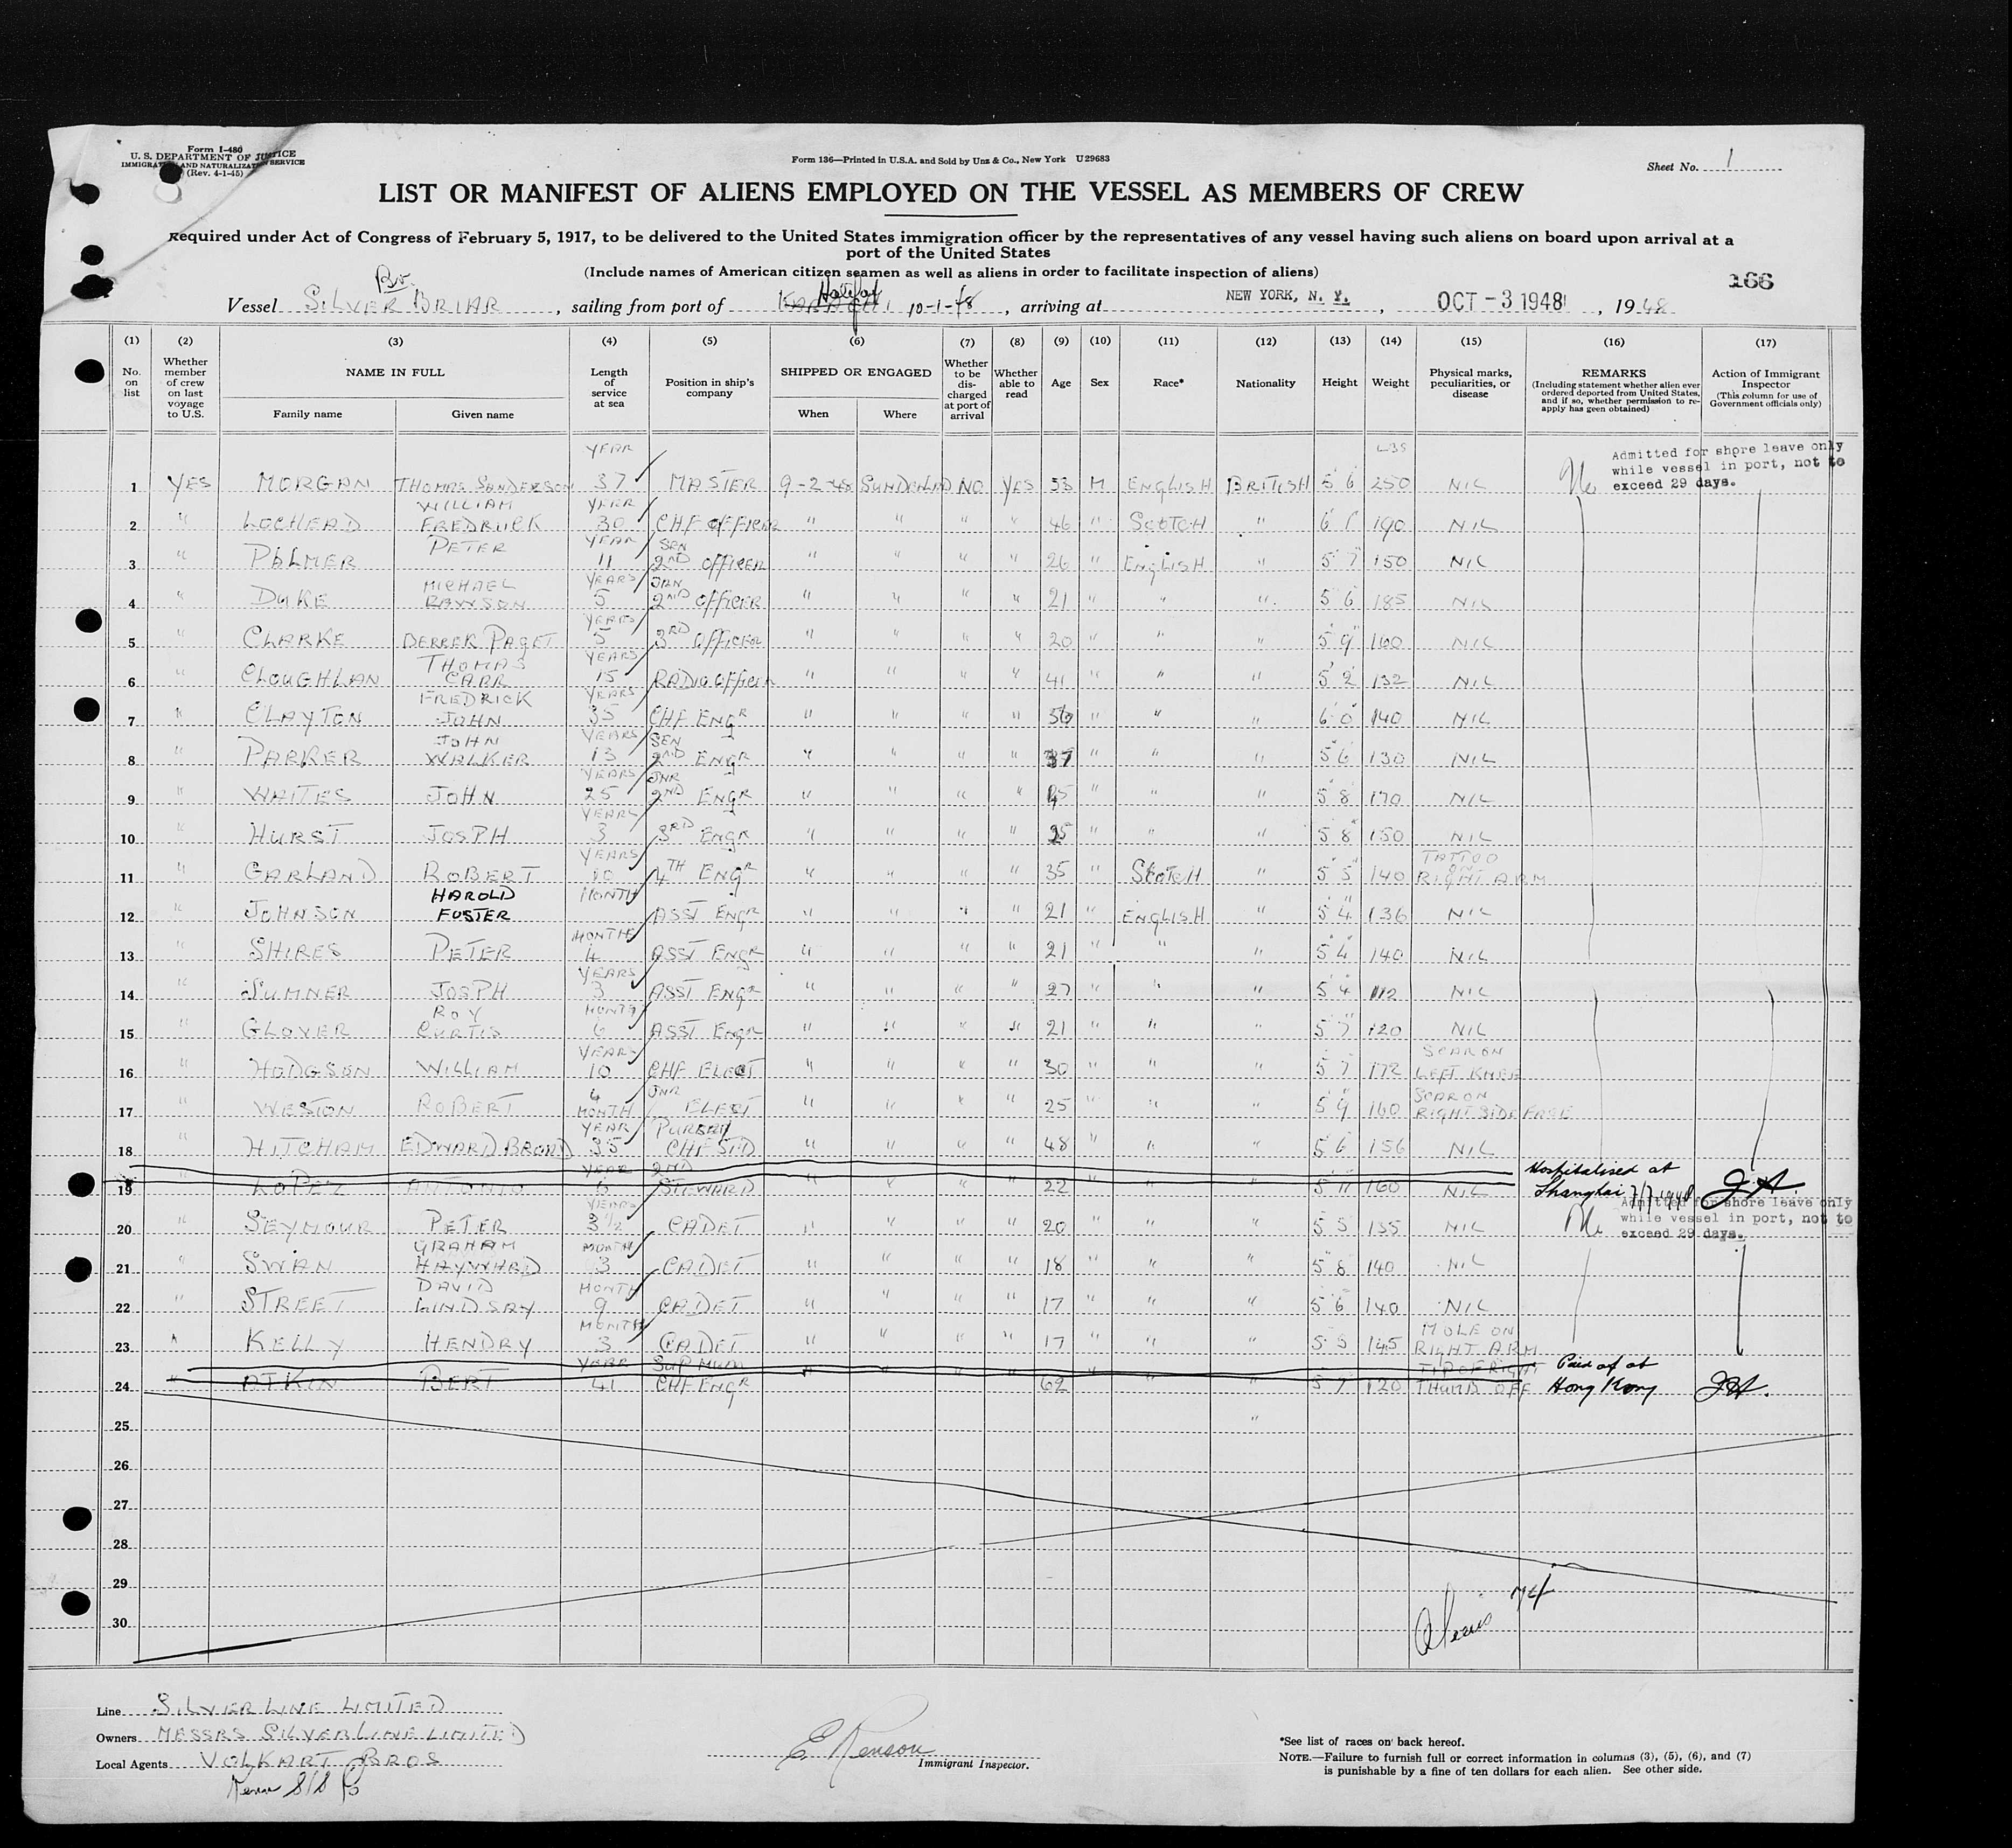 Form I-480
U. S. DEPARTMENT OF JUSTICE
IMMIGRATION AND NATURALIZATION SERVICE
(Rev. 4-1-45)
Form 136—Printed in U.S.A. and Sold by Unz & Co., New York U29683
Sheet No. 1
LIST OR MANIFEST OF ALIENS EMPLOYED ON THE VESSEL AS MEMBERS OF CREW
Required under Act of Congress of February 5, 1917, to be delivered to the United States immigration officer by the representatives of any vessel having such aliens on board upon arrival at a
port of the United States
(Include names of American citizen seamen as well as aliens in order to facilitate inspection of aliens)
166
Br.
Halifax
Vessel SILVER BRIAR, sailing from port of KARACHI 10-1-48, arriving at NEW YORK, N. Y., OCT - 3 1948, 1948
(1) (2) (3) (4) (5) (6) (7) (8) (9) (10) (11) (12) (13) (14) (15) (16) (17)
No. on list
Whether member of crew on last voyage to U.S.
NAME IN FULL
Family name
Given name
Length of service at sea
Position in ship's company
SHIPPED OR ENGAGED
When
Where
Whether to be discharged at port of arrival
Whether able to read
Age
Sex
Race*
Nationality
Height
Weight
Physical marks, peculiarities, or disease
REMARKS
(Including statement whether alien ever ordered deported from United States, and if so, whether permission to re-apply has geen obtained)
Action of Immigrant Inspector
(This column for use of Government officials only)
Admitted for shore leave only
while vessel in port, not to
exceed 29 days.
YEAR LBS
1 YES MORGAN THOMAS SANDERSON 37 MASTER 9-2-48 SUNDERLAND NO YES 53 M ENGLISH BRITISH 5 6 250 NIL
2 " LOCHEAD WILLIAM FREDRUCK YEAR 30 CHF OFFICER " " " " 46 " SCOTCH " 6 1 190 NIL
3 " PALMER PETER YEAR 11 SEN 2ND OFFICER " " " " 26 " ENGLISH " 5 7 150 NIL
4 " DUKE MICHAEL RAWSON YEARS 5 JNR 2ND OFFICER " " " " 21 " " " 5 6 185 NIL
5 " CLARKE DERRER PAGET YEARS 5 3RD OFFICER " " " " 20 " " " 5 9 160 NIL
6 " CLOUGHLAN THOMAS CARR YEARS 15 RADIO OFFICER " " " " 41 " " " 5 2 132 NIL
7 " CLAYTON FREDRICK JOHN YEARS 35 CHF ENGR " " " " 56 " " " 6 0 140 NIL
8 " PARKER JOHN WALKER YEARS 13 SEN 2ND ENGR " " " " 37 " " " 5 6 130 NIL
9 " WAITES JOHN YEARS 25 JNR 2ND ENGR " " " " 45 " " " 5 8 170 NIL
10 " HURST JOSPH YEARS 3 3RD ENGR " " " " 25 " " " 5 8 150 NIL
11 " GARLAND ROBERT YEARS 10 4TH ENGR " " " " 35 " SCOTCH " 5 5 140 TATTOO ON RIGHT ARM
12 " JOHNSON HAROLD FOSTER MONTH ASST ENGR " " " " 21 " ENGLISH " 5 4 136 NIL
13 " SHIRES PETER MONTHS 4 ASST ENGR " " " " 21 " " " 5 4 140 NIL
14 " SUMNER JOSPH YEARS 3 ASST ENGR " " " " 27 " " " 5 4 112 NIL
15 " GLOVER ROY CURTIS MONTHS 6 ASST ENGR " " " " 21 " " " 5 7 120 NIL
16 " HODGSON WILLIAM YEARS 10 CHF ELECT " " " " 30 " " " 5 7 172 SCAR ON LEFT KNEE
17 " WESTON ROBERT 4 MONTH JNR ELECT " " " " 25 " " " 5 9 160 SCAR ON RIGHT SIDE FACE
18 " HITCHAM EDWARD YEAR 35 PURSER/ CHF STD " " " " 48 " " " 5 6 156 NIL
19 " LOPEZ ANTONIO YEAR 6 2ND STEWARD " " " " 22 " " " 5 11 160 NIL Hospitalised at Shanghai 7/7/1948 J.A.
Admitted for shore leave only
while vessel in port, not to
exceed 29 days.
20 " SEYMOUR PETER YEARS 3½ CADET " " " " 20 " " " 5 5 135 NIL
21 " SWAN GRAHAM HAYWARD MONTH 3 CADET " " " " 18 " " " 5 8 140 NIL
22 " STREET DAVID LINDSAY MONTH 9 CADET " " " " 17 " " " 5 6 140 NIL
23 " KELLY HENDRY MONTH 3 CADET " " " " 17 " " " 5 5 145 MOLE ON RIGHT ARM
24 " ATKIN BERT YEAR 41 SUP NUM CHF ENGR " " " " 62 " " " 5 7 120 TIP OF RIGHT THUMB OFF Paid off at Hong Kong J.A.
25 "
26
27
28
29
30
74
Line SILVER LINE LIMITED
Owners MESSRS SILVERLINE LIMITED
Local Agents VOLKART BROS
E Renson
Immigrant Inspector.
*See list of races on back hereof.
NOTE.—Failure to furnish full or correct information in columns (3), (5), (6), and (7)
is punishable by a fine of ten dollars for each alien. See other side.